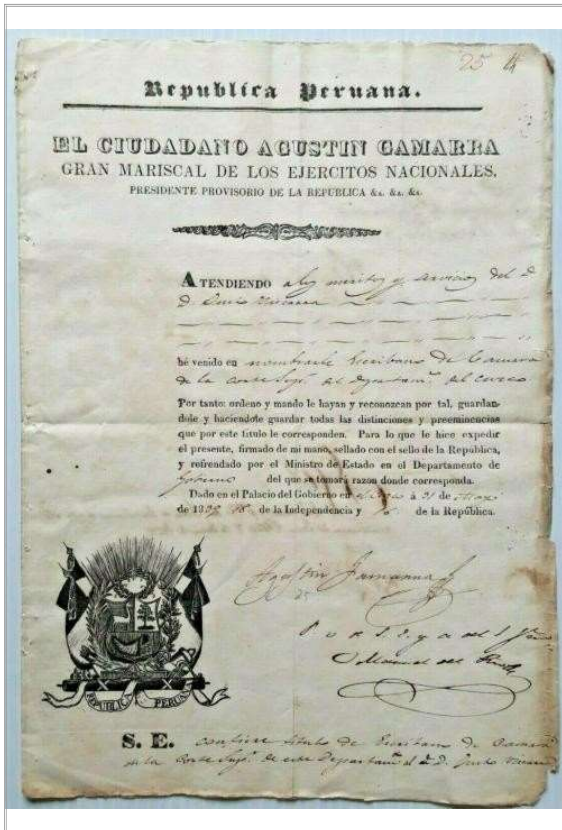 25
Republica Peruana.
EL CIUDADANO AGUSTIN GAMARRA
GRAN MARISCAL DE LOS EJERCITOS NACIONALES,
PRESIDENTE PROVISORIO DE LA REPUBLICA &a. &a. &a.
ATENDIENDO a los meritos y servicios del
D.
hé venido en nombrarle Escribano de Camara
de la Corte Supr. del Departam.º del Cuzco
Por tanto: ordeno y mando le hayan y reconozcan por tal, guardan-
dole y haciendole guardar todas las distinciones y preeminencias
que por este titulo le corresponden. Para lo que le hice expedir
el presente, firmado de mi mano, sellado con el sello de la República,
y refrendado por el Ministro de Estado en el Departamento de
Gobierno del que se tomará razon donde corresponda.
Dado en el Palacio del Gobierno en á 31 de
de 1839 18 de la Independencia y de la República.
Agustin Gamarra
Por S. E.
Manuel del
REPUBLICA PERUANA
S. E. confiere titulo de Escribano de Camara
de la Corte Supr. de este Departam.º al D.